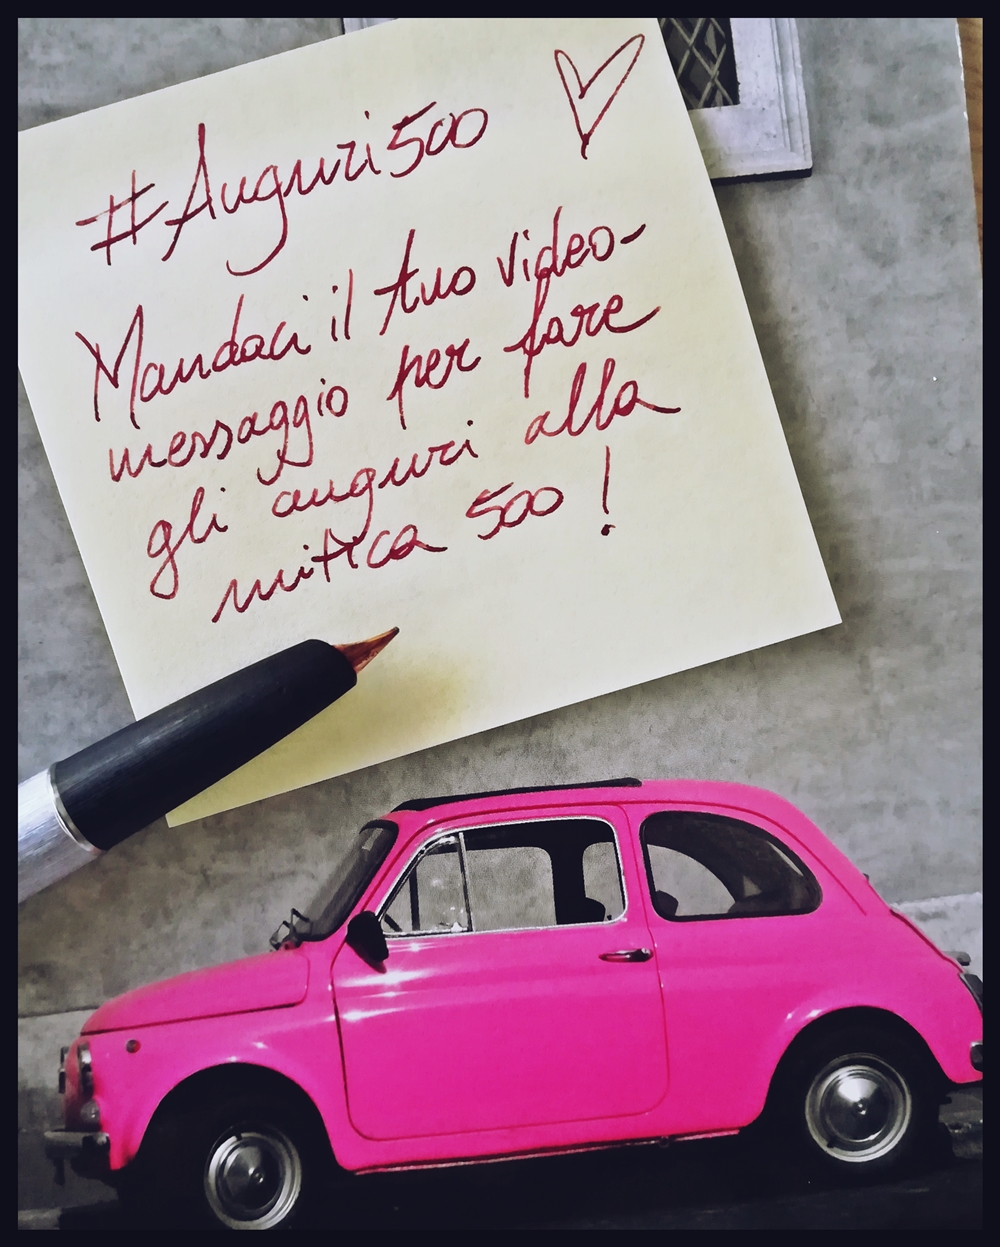 #Auguri500
Mandaci il tuo video-
messaggio per fare
gli auguri alla
mitica 500!